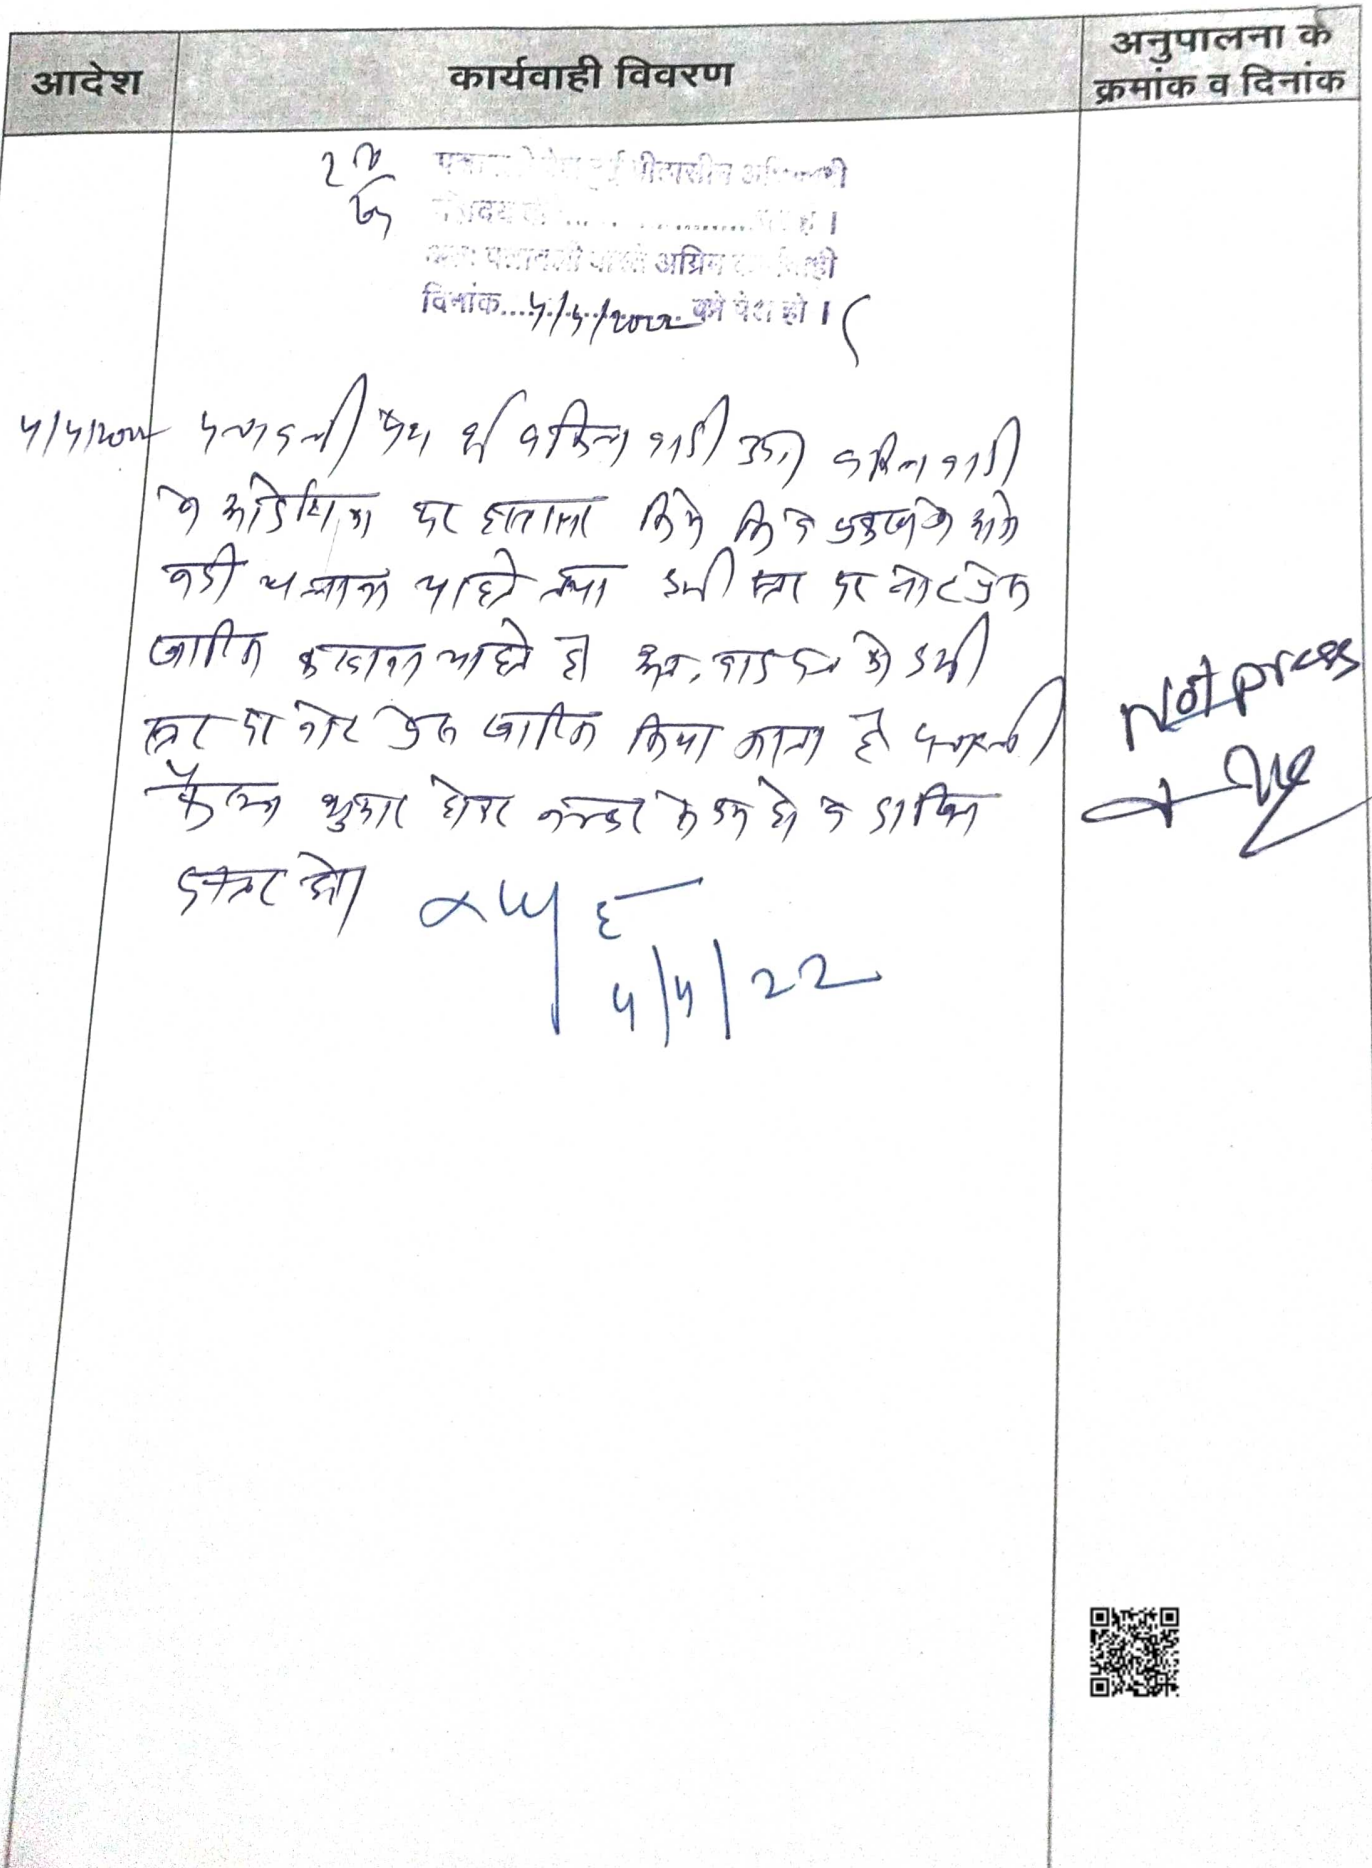 आदेश
कार्यवाही विवरण
अनुपालना के
क्रमांक व दिनांक
पीठासीन अधिकारी
है ।
अतः पत्रावली वास्ते अग्रिम कार्यवाही
दिनांक....4/4/2022....को पेश हो ।
4/4/2022 पत्रावली पेश हुई वकील वादी उप. वकील वादी
ने आदेशिका पर हस्ताक्षर किये कि वे प्रकरण को आगे
नहीं चलाना चाहते तथा इसी स्तर पर नोट प्रेस
खारिज करवाना चाहते है अतः वाद पत्र को इसी
स्तर पर नोट प्रेस खारिज किया जाता है पत्रावली
फैसल शुमार होकर नम्बर से कम हो व दाखिल
दफ्तर हो।
4/4/22
Not press